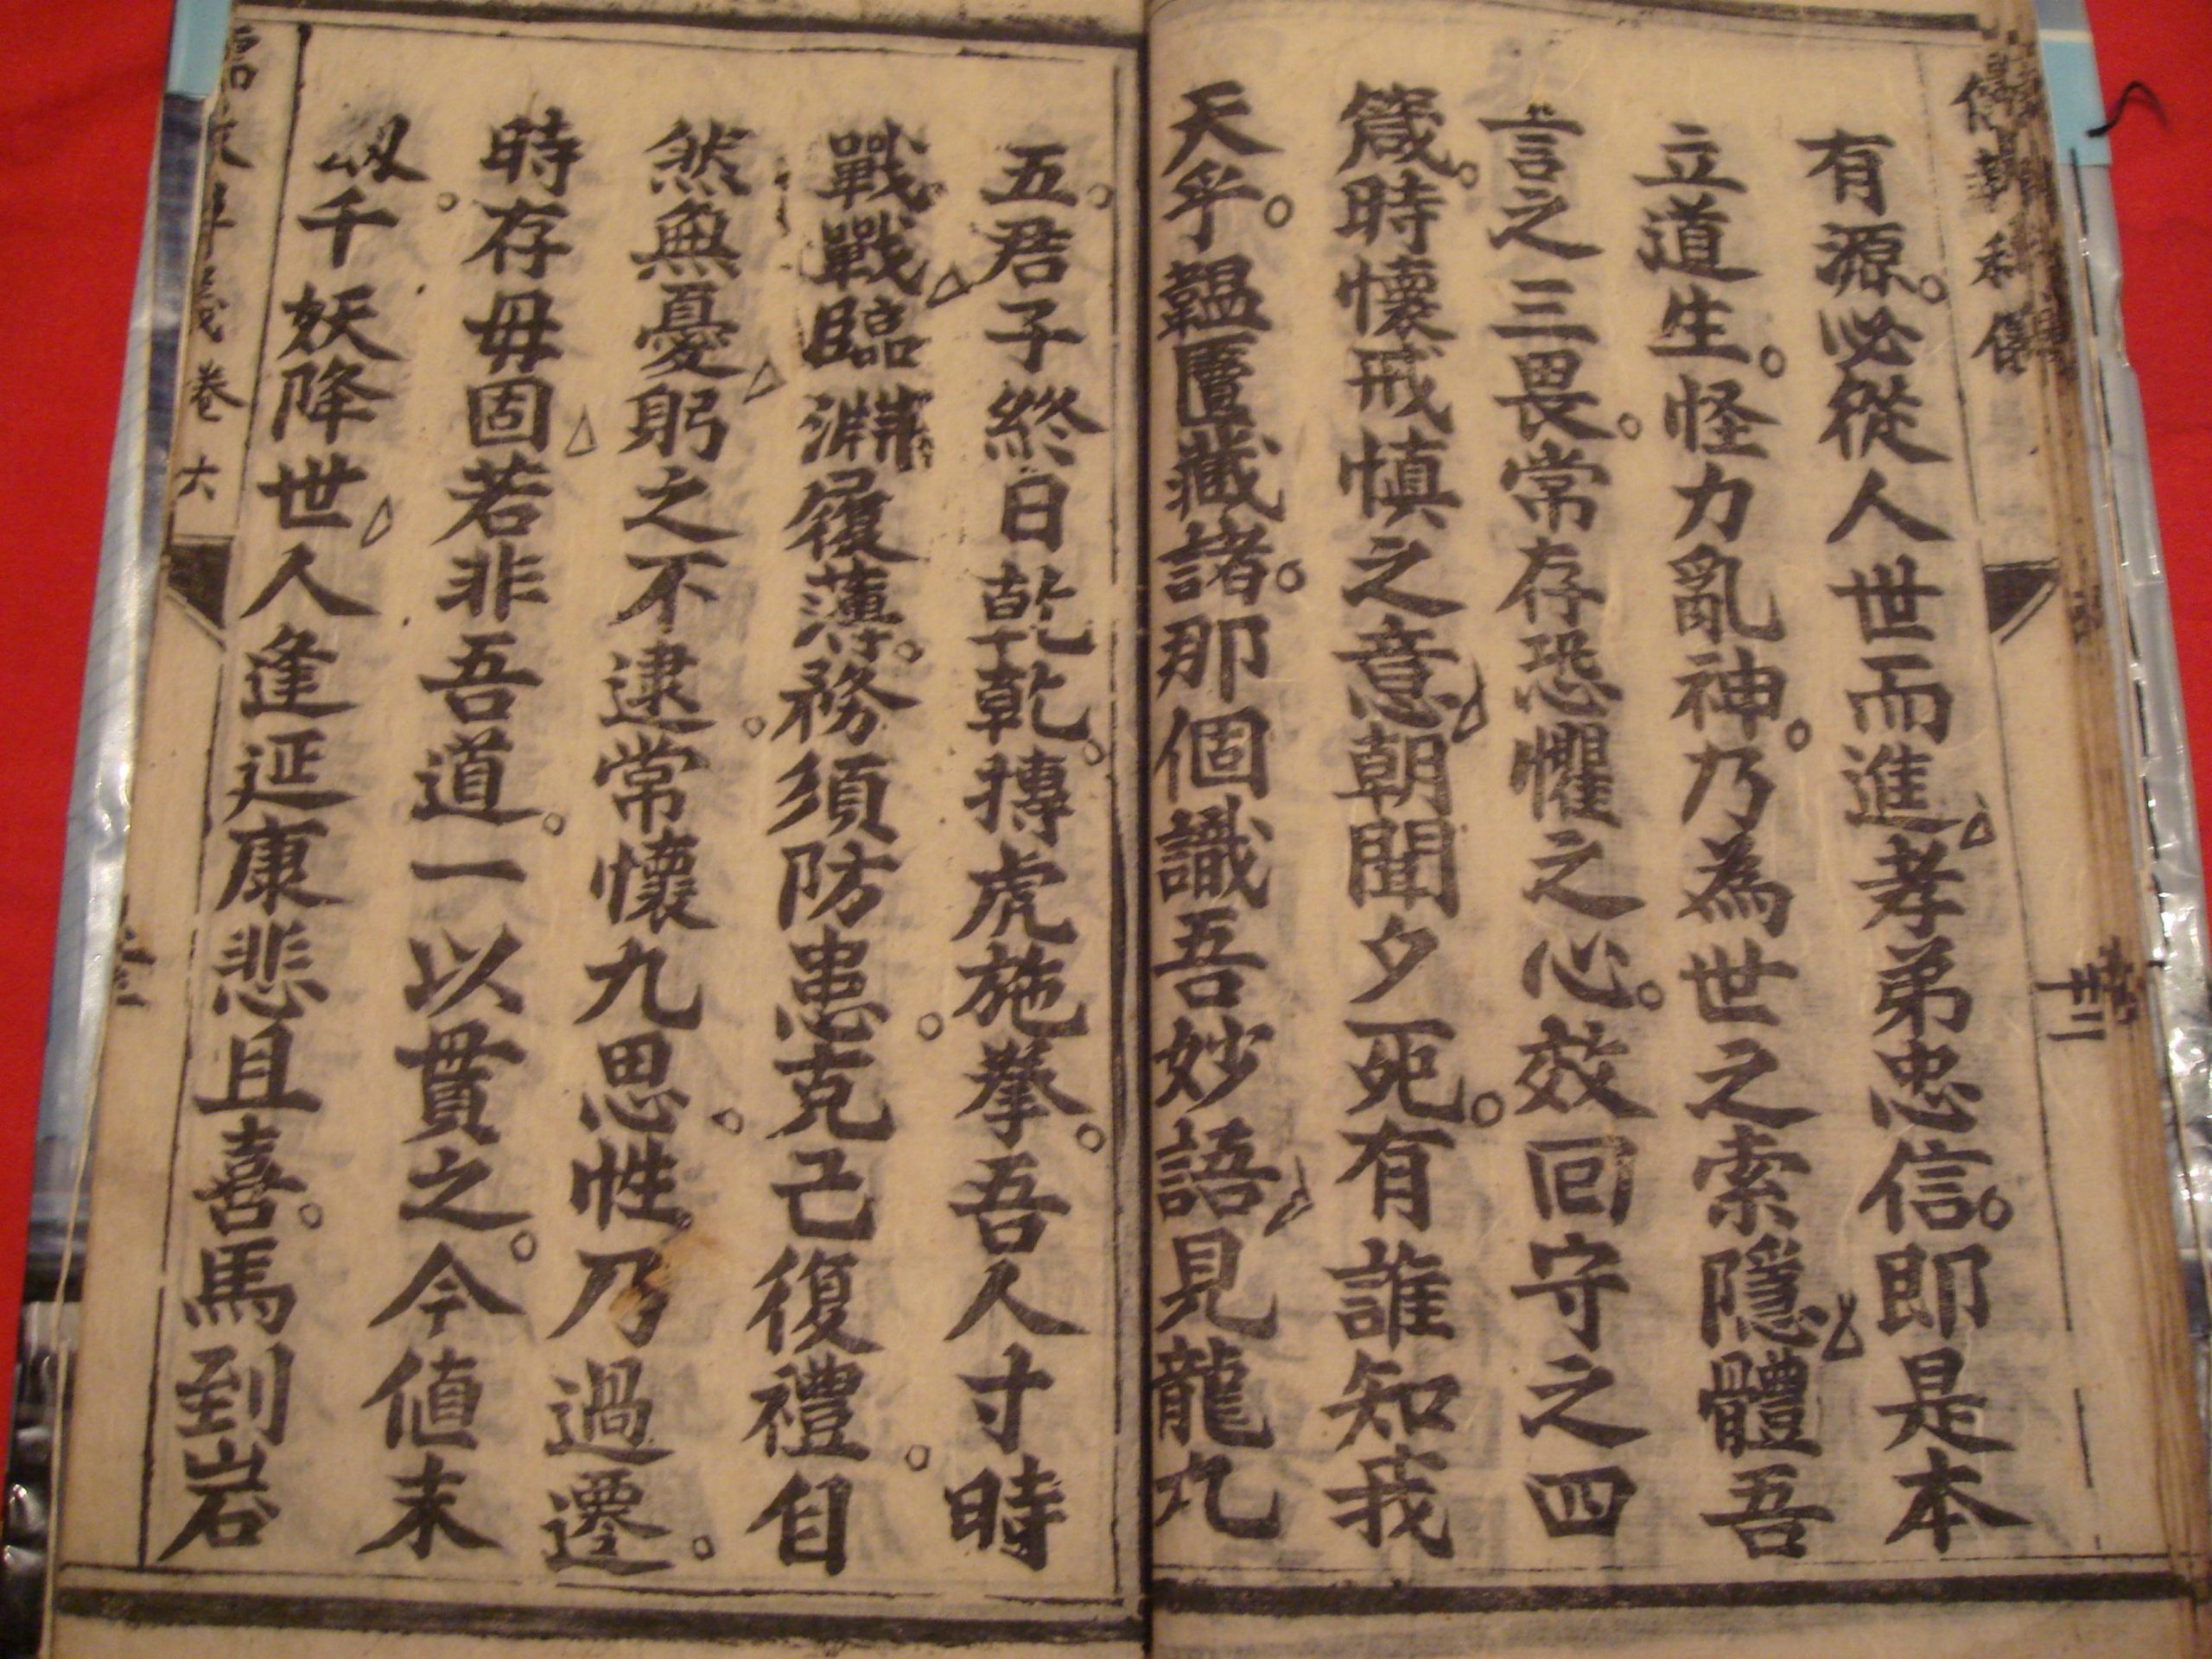 有源。必從人世而進△孝弟忠信。即是本
立道生。怪力亂神。乃為世之索隱△體吾
言之三畏。常存恐懼之心。效回守之四
箴。時懷戒慎之意△朝聞夕死。有誰知我
天乎。韞匵藏諸。那個識吾妙語△見龍九
五。君子終日乾乾。摶虎施拳。吾人寸時
戰戰△臨淵履薄。務須防患。克己復禮。自
然無憂△躬之不逮。常懷九思。性乃過遷。
時存毋固△若非吾道。一以貫之。今值末
刼。千妖降世△人逢延康悲且喜。馬到岩
卷六